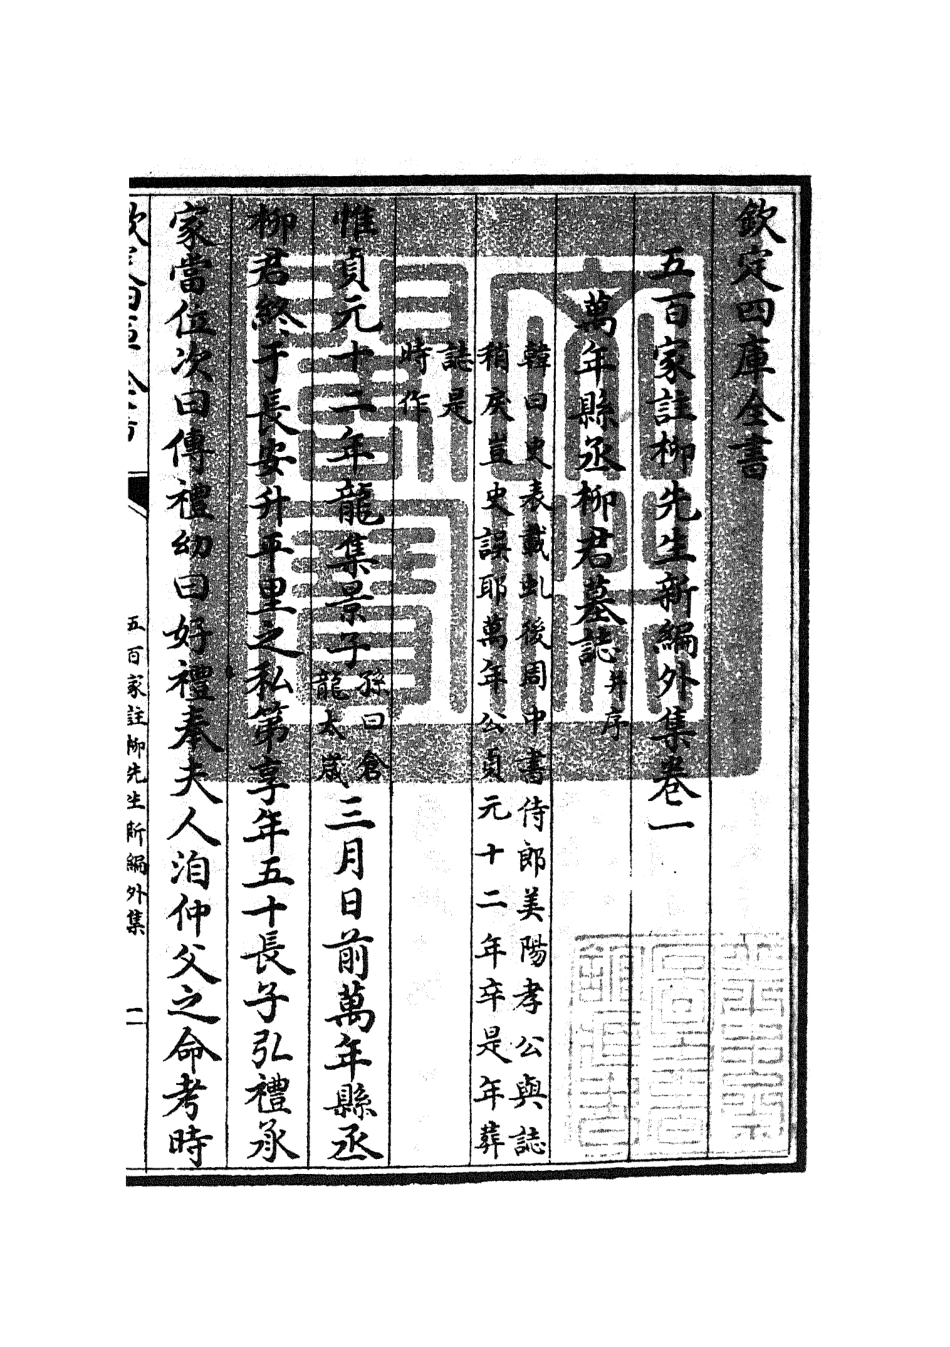 欽定四庫全書
五百家註柳先生新編外集卷一
萬年縣丞柳君墓誌并序
韓曰史表載虬後周中書侍郎美陽孝公與誌
稍戾豈史誤耶萬年公貞元十二年卒是年葬
誌是
時作
惟貞元十二年龍集景子孫曰倉龍太歲三月日前萬年縣丞
柳君終于長安升平里之私第享年五十長子弘禮承
家當位次曰傳禮幼曰好禮奉夫人洎仲父之命考時
欽定四庫全書
五百家註柳先生新編外集
二